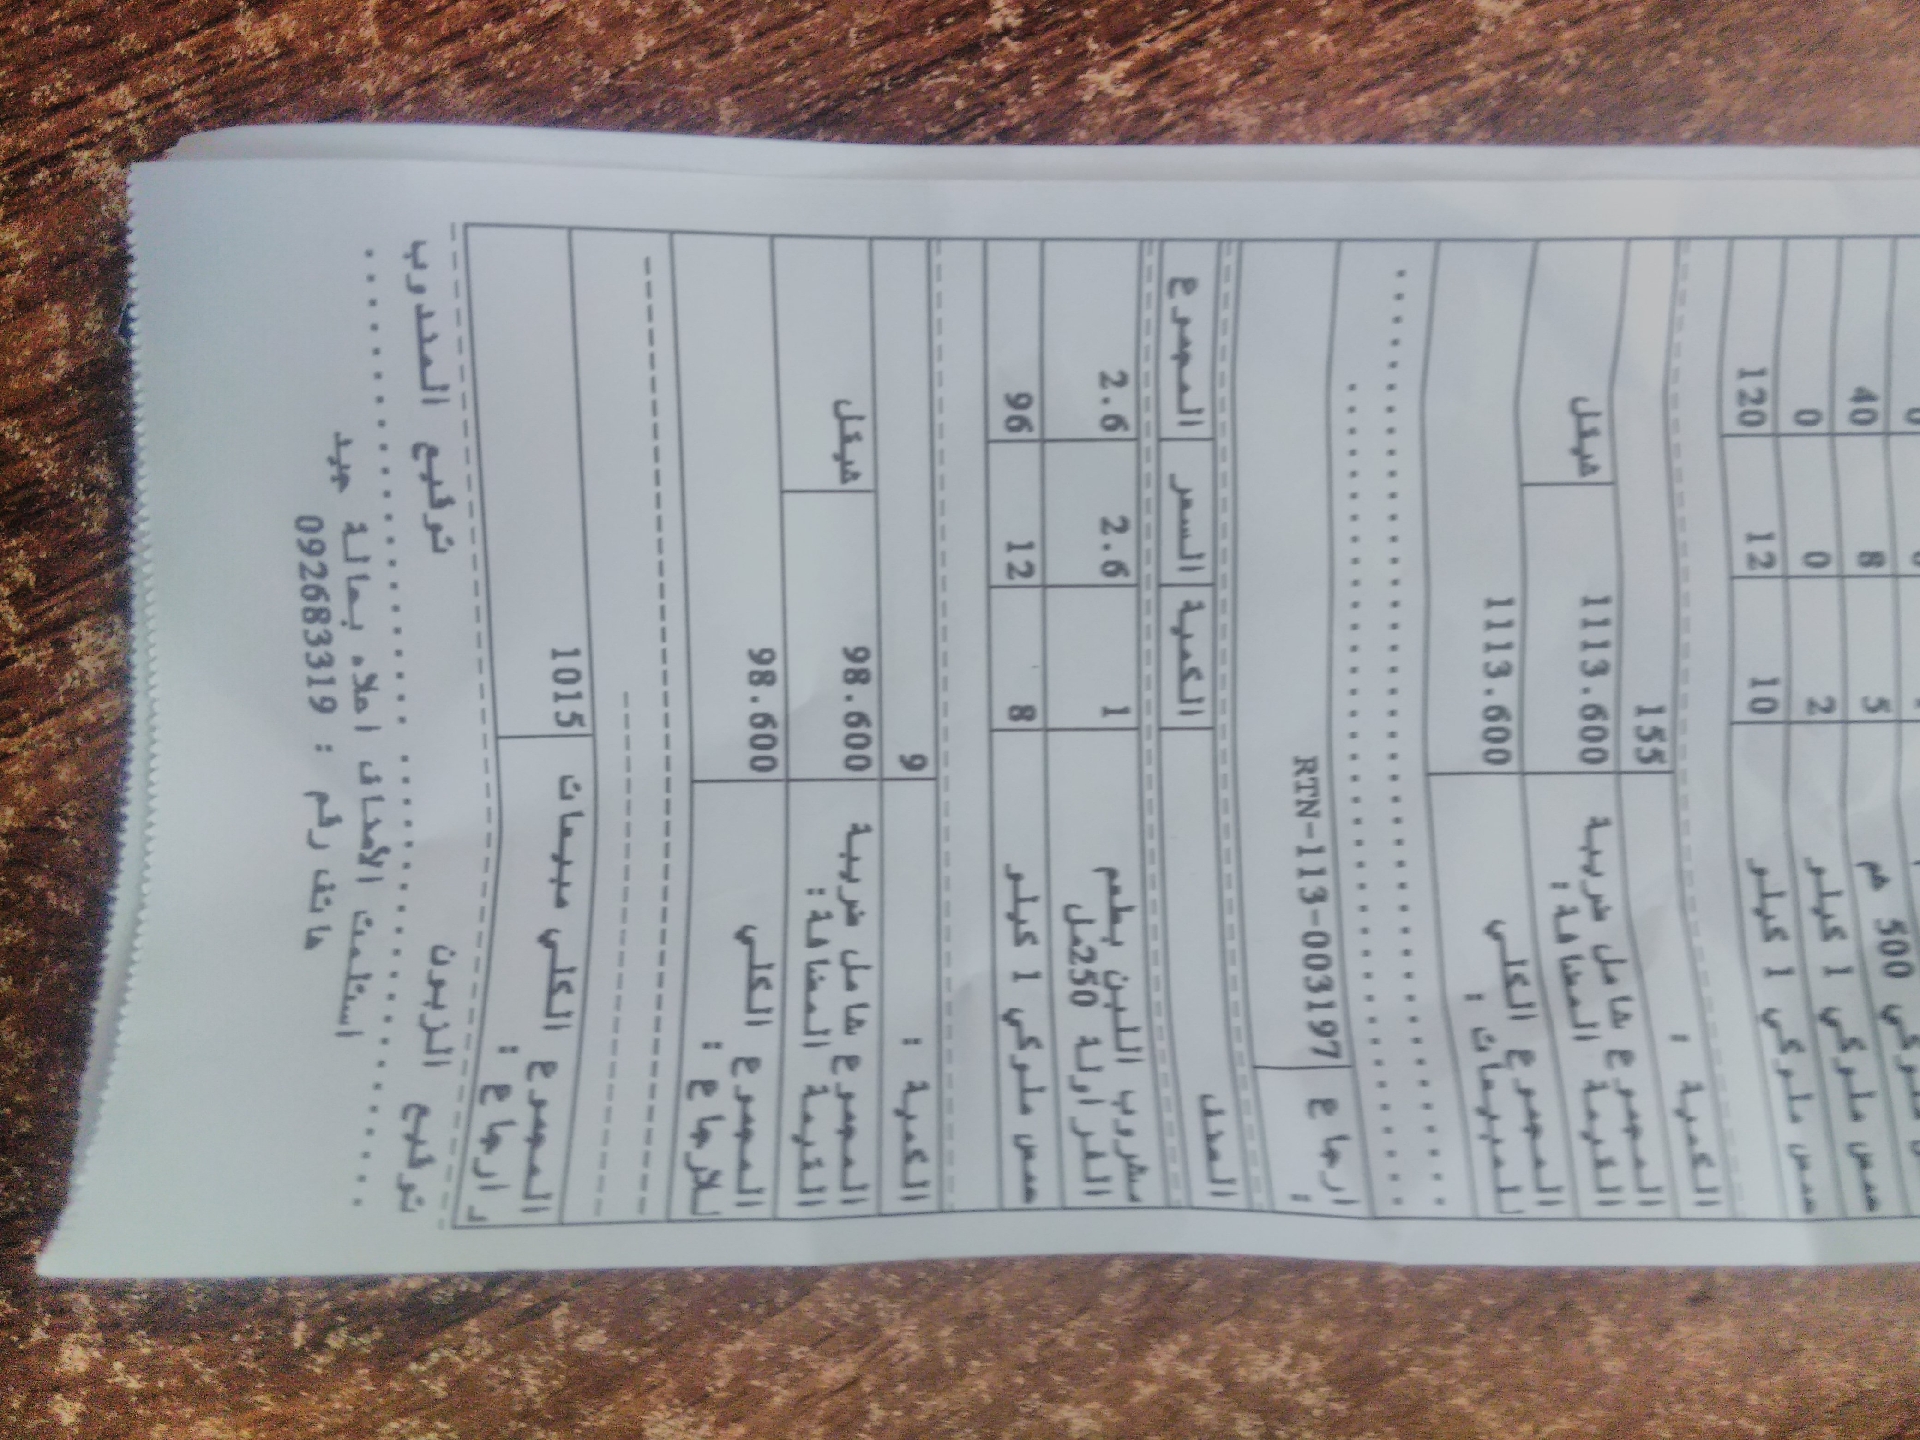 500 غم 5 8 40
حمص ملوكي 1 كيلو 2 0 0
حمص ملوكي 1 كيلو 10 12 120
الكمية : 155
المجموع شامل ضريبة القيمة المضافة : 1113.600 شيقل
المجموع الكلي للمبيعات : 1113.600
ارجاع : RTN-113-003197
الصنف الكمية السعر المجموع
مشروب اللبن بطعم الفراولة 250مل 1 2.6 2.6
حمص ملوكي 1 كيلو 8 12 96
الكمية : 9
المجموع شامل ضريبة القيمة المضافة : 98.600 شيقل
المجموع الكلي للارجاع : 98.600
المجموع الكلي مبيعات - ارجاع : 1015
توقيع الزبون توقيع المندوب
استلمت الأصناف اعلاه بحالة جيد
هاتف رقم : 092683319